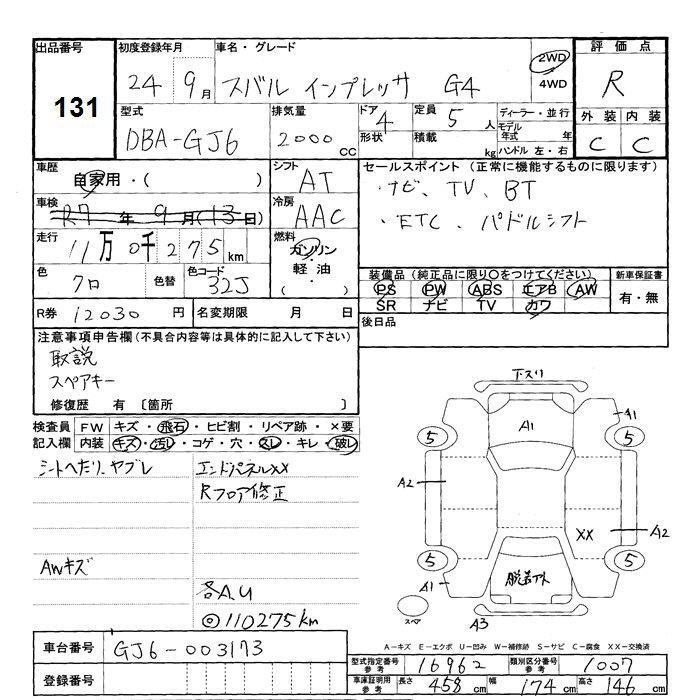 出品番号 初度登録年月 車名・グレード 評価点
131 24 9月 スバル インプレッサ G4 2WD 4WD R
型式 排気量 ドア 定員 ディーラー・並行 外装 内装
DBA-GJ6 2000cc 4 5人 モデル年式 年 C C
形状 積載 kg ハンドル 左・右
車歴 自家用・( ) シフト AT セールスポイント(正常に機能するものに限ります)
・ナビ、TV、BT
車検 R7年9月(13日) 冷房 AAC ・ETC、パドルシフト
走行 11万0千275km 燃料 ガソリン・軽油・( )
装備品(純正品に限り○をつけてください) 新車保証書
色 クロ 色替 色コード 32J PS PW ABS エアB AW 有・無
SR ナビ TV カワ
R券 12030円 名変期限 月 日 後日品
注意事項申告欄(不具合内容等は具体的に記入して下さい)
取説
スペアキー
修復歴 有〔箇所 〕
検査員記入欄 FW キズ・飛石・ヒビ割・リペア跡・×要
内装 キズ・汚レ・コゲ・穴・スレ・キレ・破レ
シートへたり、ヤブレ エンドパネルXX
Rフロア修正
AWキズ
各A.U
◎110275km
下スリ
A1 A1
5 5
A2
XX A2
5 5
脱着アト
A1
スペア A3
A-キズ E-エクボ U-凹み W-補修跡 S-サビ C-腐食 XX-交換済
車台番号 GJ6-003173 型式指定番号参考 16962 類別区分番号参考 1007
登録番号 車庫証明用参考 長さ 458cm 幅 174cm 高さ 146cm